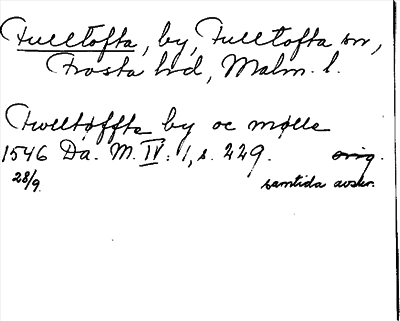 Fulltofta, by, Fulltofta sn,
Frosta hd, Malm. l.
Fwlltøffte by oc mølle
1546 Da. M. IV: 1, s. 229. orig.
28/9. samtida avskr.